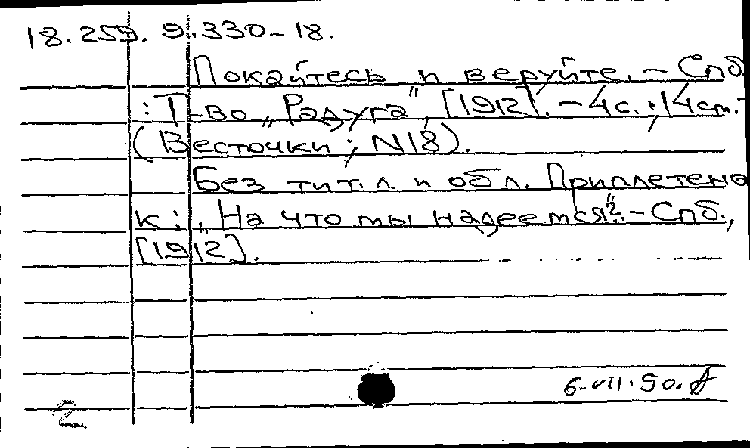 18.259.9.330-18.
Покайтесь и веруйте. - Спб
: Т-во „Радуга", [1912]. - 4 с.; 14 см. -
(Весточки; N18).
Без тит. л. и обл. Приплетено
к: „На что ты надеешься?" - Спб.,
[1912].
6-VII-90.
2